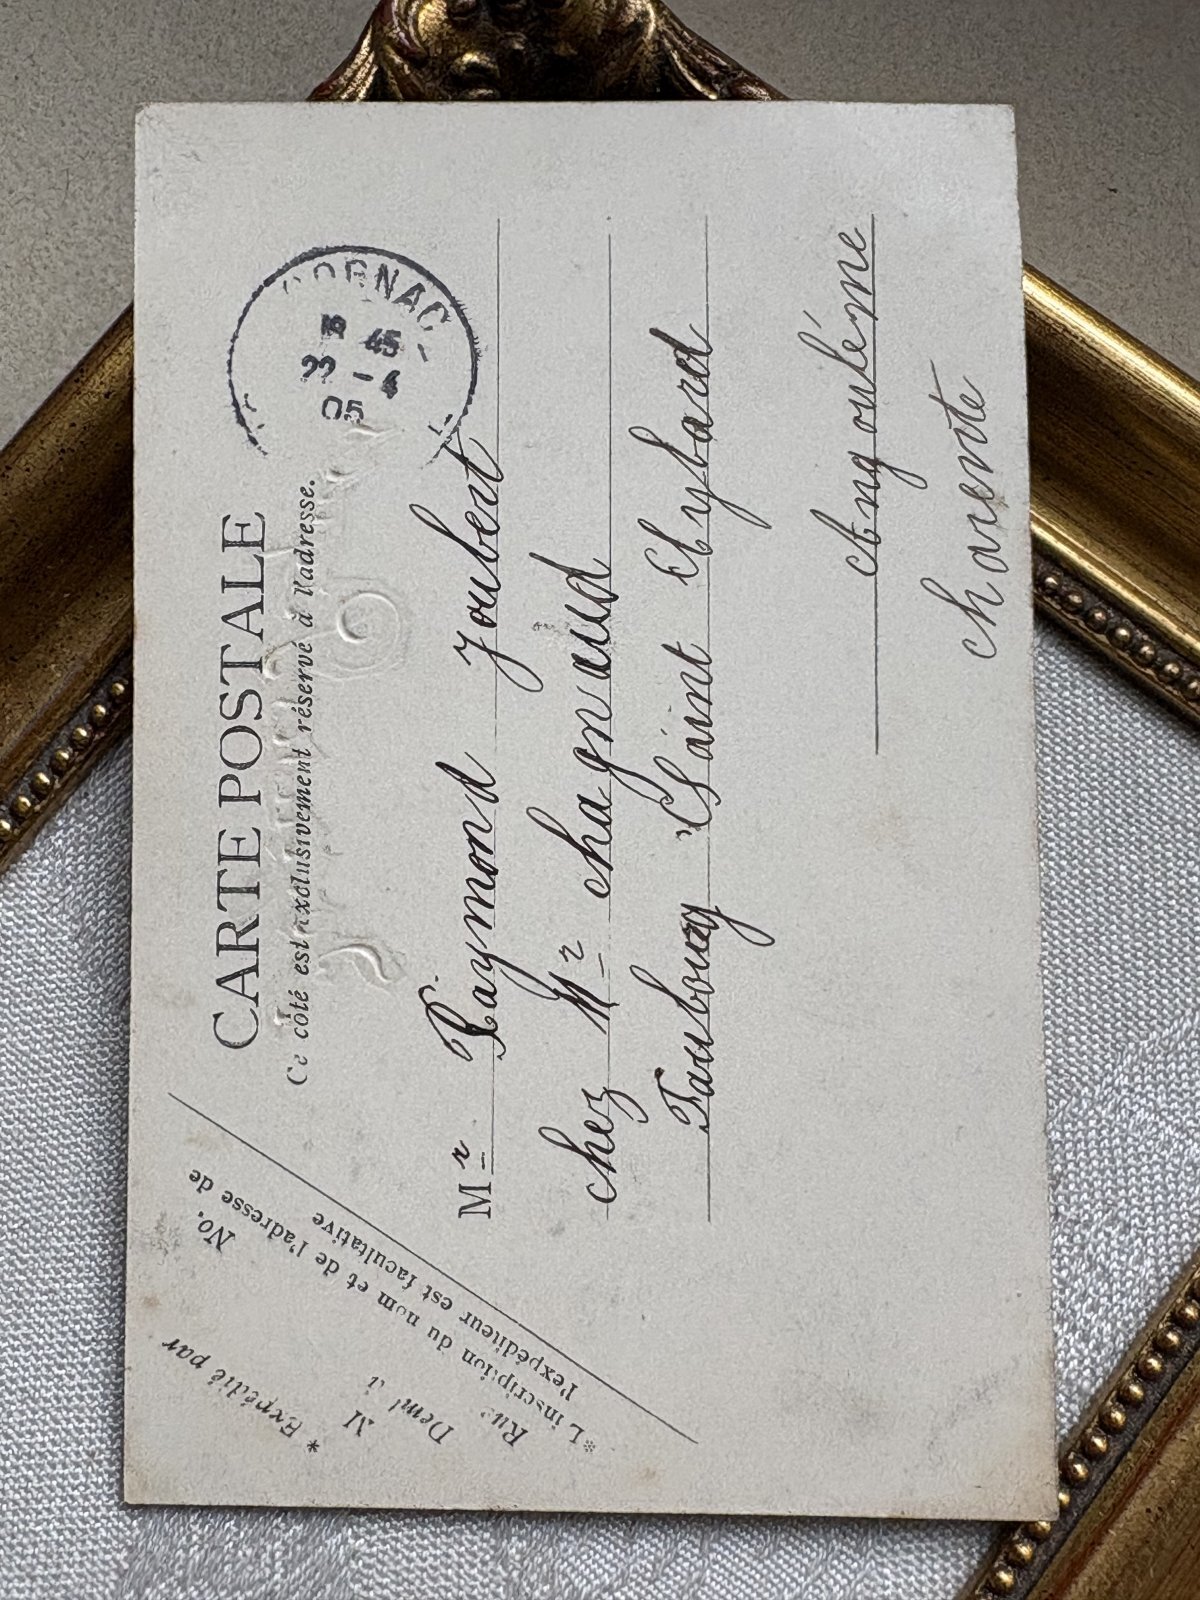 CARTE POSTALE
Ce côté est exclusivement réservé à l'adresse.
45
22 - 4
05
Mr Raymond Joubert
chez Mr chagnaud
Faubourg Saint Cybard
Angoulême
charente
* Expédié par
M
Demt à
Rue No.
* L'inscription du nom et de l'adresse de
l'expéditeur est facultative